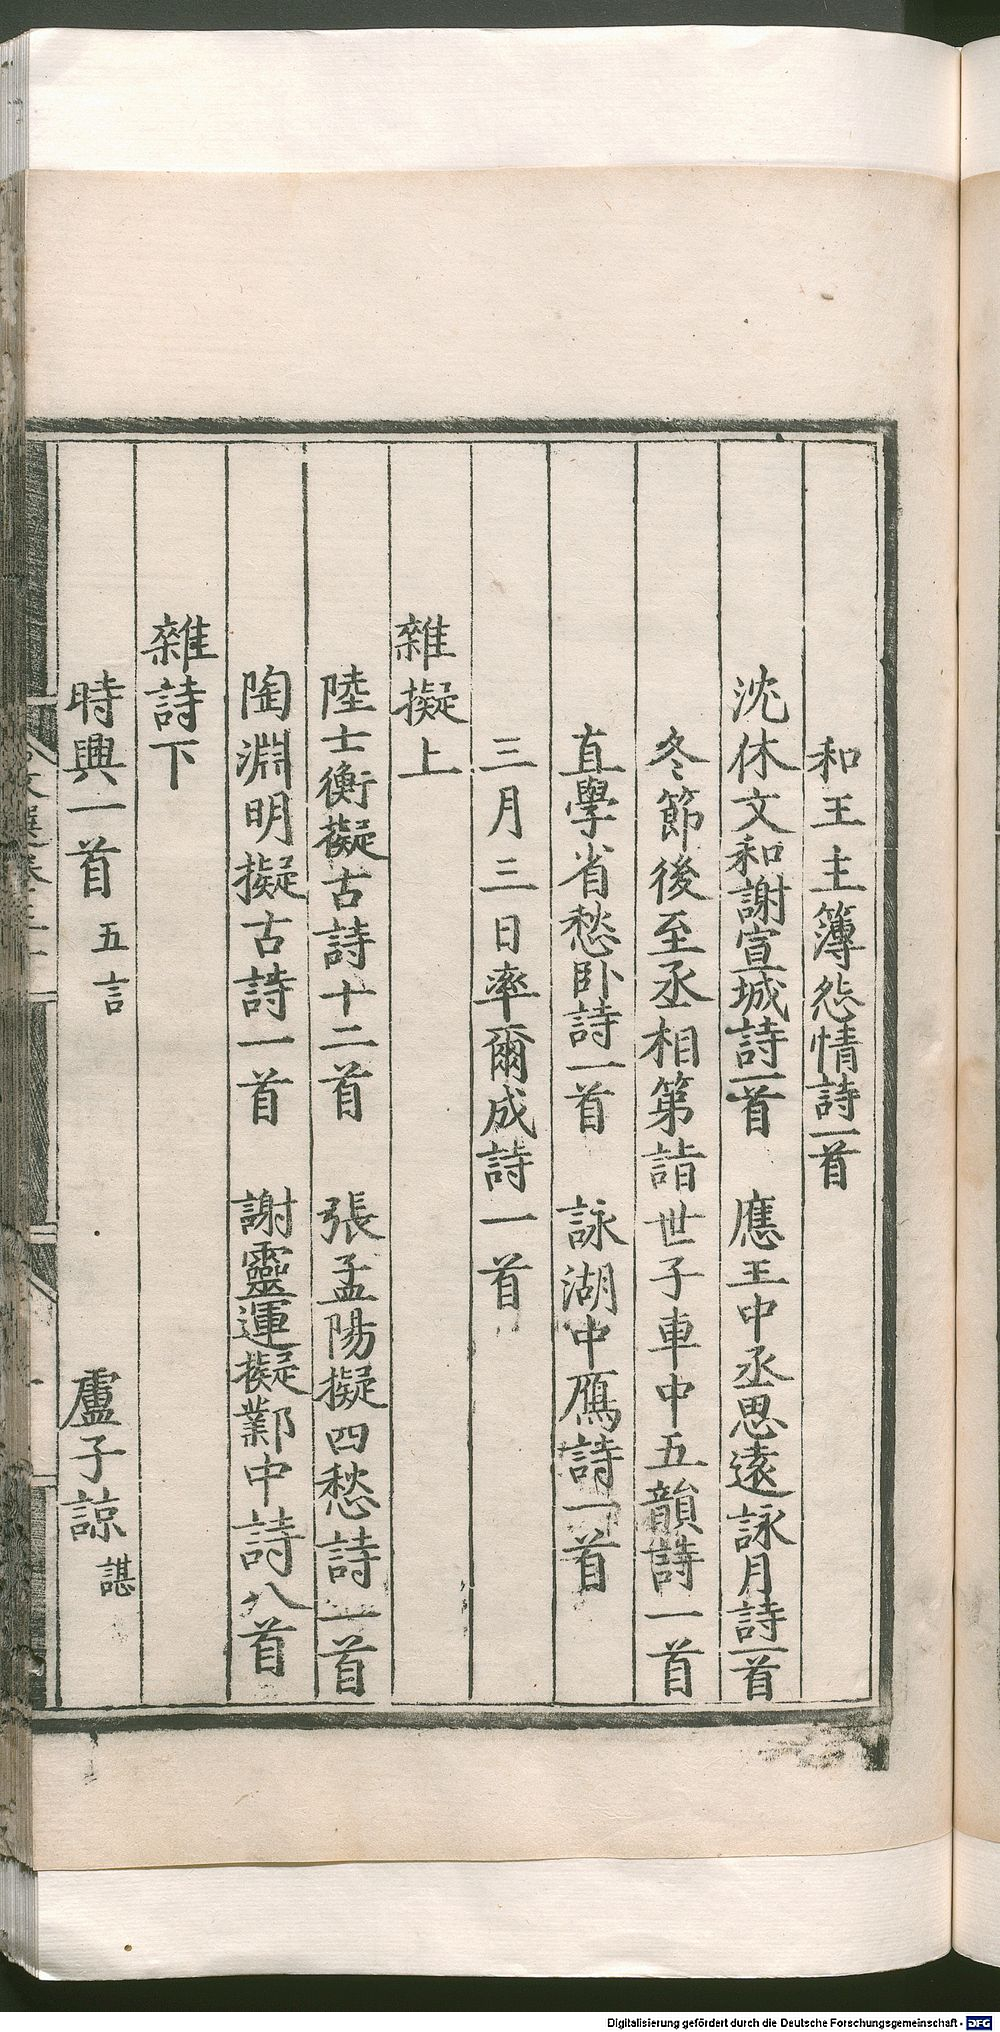 和王主簿怨情詩一首
沈休文和謝宣城詩一首　應王中丞思遠詠月詩一首
冬節後至丞相第詣世子車中五韻詩一首
直學省愁卧詩一首　詠湖中鴈詩一首
三月三日率爾成詩一首
雜擬上
陸士衡擬古詩十二首　張孟陽擬四愁詩一首
陶淵明擬古詩一首　謝靈運擬鄴中詩八首
雜詩下
時興一首五言　盧子諒諶
Digitalisierung gefördert durch die Deutsche Forschungsgemeinschaft - DFG